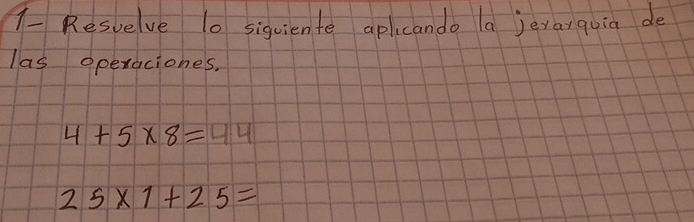 1- Resuelve lo siguiente aplicando la jerarquia de
las operaciones.
4 + 5 x 8 = 44
25 x 1 + 25 =